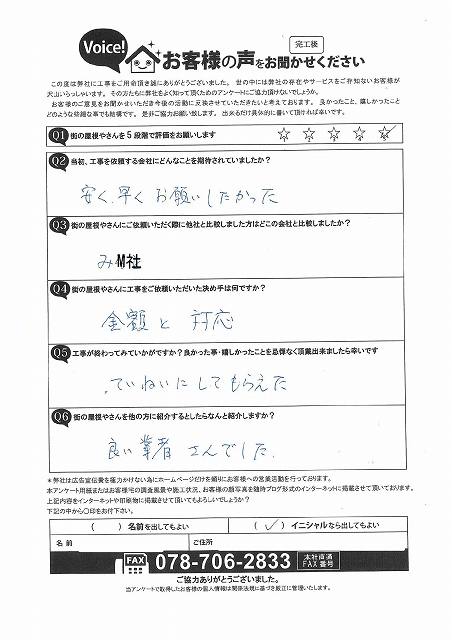 Voice!
お客様の声をお聞かせください
完工後
この度は弊社に工事をご用命頂き誠にありがとうございました。 世の中には弊社の存在やサービスをご存知ないお客様が
沢山いらっしゃいます。 その方たちに弊社をもよく知って頂くためのアンケートにご協力頂けないでしょうか。
お客様のご意見をお聞かせいただき今後の活動に反映させていただきたいと考えております。 良かったこと、嬉しかったこと
どのような些細な事でも結構です。 是非ご協力お願い致します。 出来るだけ具体的に書いて頂ければ幸いです。
Q1 街の屋根やさんを5段階で評価をお願いします
☆ ☆ ☆ ☆ ☆
Q2 当初、工事を依頼する会社にどんなことを期待されていましたか？
安く、早く お願いしたかった
Q3 街の屋根やさんにご依頼いただく際に他社と比較しました方はどこの会社と比較しましたか？
み M社
Q4 街の屋根やさんに工事をご依頼いただいた決め手は何ですか？
金額と 対応
Q5 工事が終わってみていかがですか？良かった事・嬉しかったことを忌憚なく頂戴出来ましたら幸いです
ていねいにしてもらえた
Q6 街の屋根やさんを他の方に紹介するとしたらなんと紹介しますか？
良い業者さんでした。
＊弊社は広告宣伝費を極力かけない為にホームページだけを頼りにお客様への営業活動を行っております。
本アンケート用紙またはお客様宅の調査風景や施工状況、お客様の顔写真を随時ブログ形式のインターネットに掲載させて頂いております。
上記内容をインターネットや印刷物に掲載させて頂いてもよろしいでしょうか？
下記の中から〇印をお付下さい。
（ ）名前を出してもよい
（✓）イニシャルなら出してもよい
名 前
ご住所
FAX 078-706-2833 本社直通 FAX番号
ご協力ありがとうございました。
当アンケートで取得したお客様の個人情報は関係法規に基づき厳正に管理いたします。